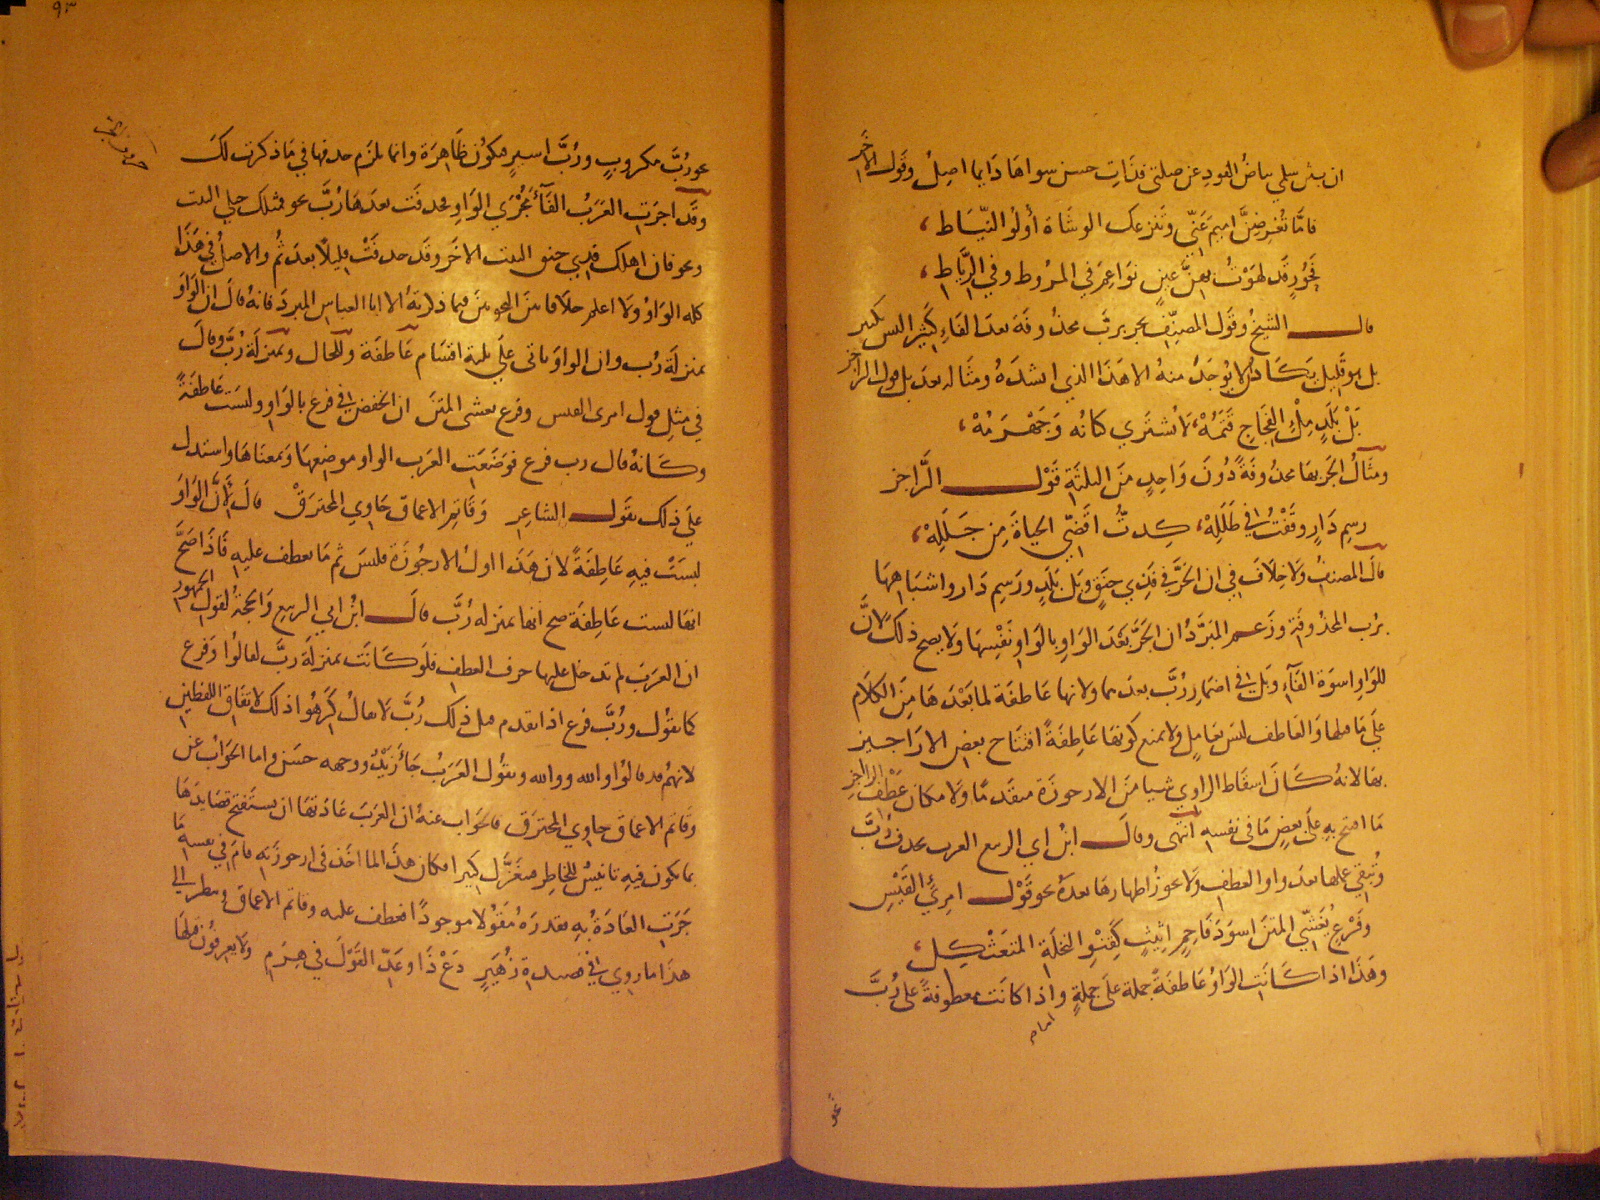 ان يثن سلمى بياض الفود عن صلتي فذات حسن سواها دايما اصل وقول الاخر
فاما تعرضن اميم عني وتنزعك الوشاة أولو النياط
فحور قد لهوت بهن عين نواعم في المروط وفي الرياط
قال الشيخ وقول المصنف يجر برب محذوفة بعد الفاء كثيرا ليس بكثير
بل هو قليل يكاد لا يوجد منه الا هذا الذي انشده ومثاله بعد بل قول الراجز
بل بلد ملء الفجاج قتمه لا يشترى كتانه وجهرمه
ومثال الجر بها محذوفة دون واحد من الثلثة قول الراجز
رسم دار وقفت في طلله كدت اقضي الحياة من جلله
قال المصنف ولا خلاف في ان الجر في فذي حنق وبل بلد ورسم دار واشباهها
برب المحذوفة وزعم المبرد ان الجر بعد الواو بالواو نفسها ولا يصح ذلك لان
للواو اسوة الفاء وبل في اضمار رب بعدهما ولانها عاطفة لما بعدها من الكلام
على ما قبلها والعاطف ليس بعامل ولا يمنع كونها عاطفة افتتاح بعض الاراجيز
بها لانه كان اسقاط الراوي شيا من الارجوزة متقدما ولامكان عطف الراجز
ما افتتح به على بعض ما في نفسه انتهى وقال ابن ابي الربيع العرب تحذف رب
وتبقي عملها بعد واو العطف ولا يجوز اظهارها بعده نحو قول امرئ القيس
وفرع يغشي المتن اسود فاحم اثيث كقنو النخلة المتعثكل
وهذا اذا كانت الواو عاطفة جملة على جملة واذا كانت معطوفة على رب
امام
نحو
حروف الجر
نحو رب مكروب ورب اسير فتكون ظاهرة وانما يلزم حذفها في ما ذكرت لك
وقد اجرت العرب الفاء مجرى الواو فحذفت بعدها رب نحو فمثلك حبلي البيت
ونحو فان اهلك فذي حنق البيت الاخر وقد حذفت قليلا بعد ثم والاصل في هذا
كله الواو ولا اعلم خلافا من النحويين فيما ذكرته الا ابا العباس المبرد فانه قال ان الواو
بمنزلة رب وان الواو تاتي على ثلثة اقسام عاطفة وللحال وبمنزلة رب وقال
في مثل قول امرى القيس وفرع يغشى المتن ان الخفض في فرع بالواو وليست عاطفة
وكانه قال رب فرع فوضعت العرب الواو موضعها وبمعناها واستدل
على ذلك بقول الشاعر وقاتم الاعماق خاوي المخترق قال لان الواو
ليست فيه عاطفة لان هذا اول الارجوزة فليس ثم ما يعطف عليه فاذا صح
انها ليست عاطفة صح انها بمنزله رب قال ابن ابي الربيع والحجة لقول الجمهور
ان العرب لم تدخل عليها حرف العطف فلو كانت بمنزلة رب لقالوا وفرع
كما يقول ورب فرع اذا تقدم قبل ذلك رب لا يقال كرهوا ذلك لاتفاق اللفظين
لانهم قد قالوا والله ووالله وتقول العرب جا زيد ووجهه حسن واما الجواب عن
وقاتم الاعماق خاوي المخترق فالجواب عنه ان العرب عادتها ان يستفتح قصايدها
بما يكون فيه تانيس للخاطر من غزل كبير امكان هذا لما اخذ في ارجوزته قام في نفسه ما
جرت العادة به فقدره مقولا موجودا فعطف عليه وقاتم الاعماق ونظر الى
هذا ما روي في قصيدة زهير دع ذا وعد القول في هرم ولا يعرفون قبلها